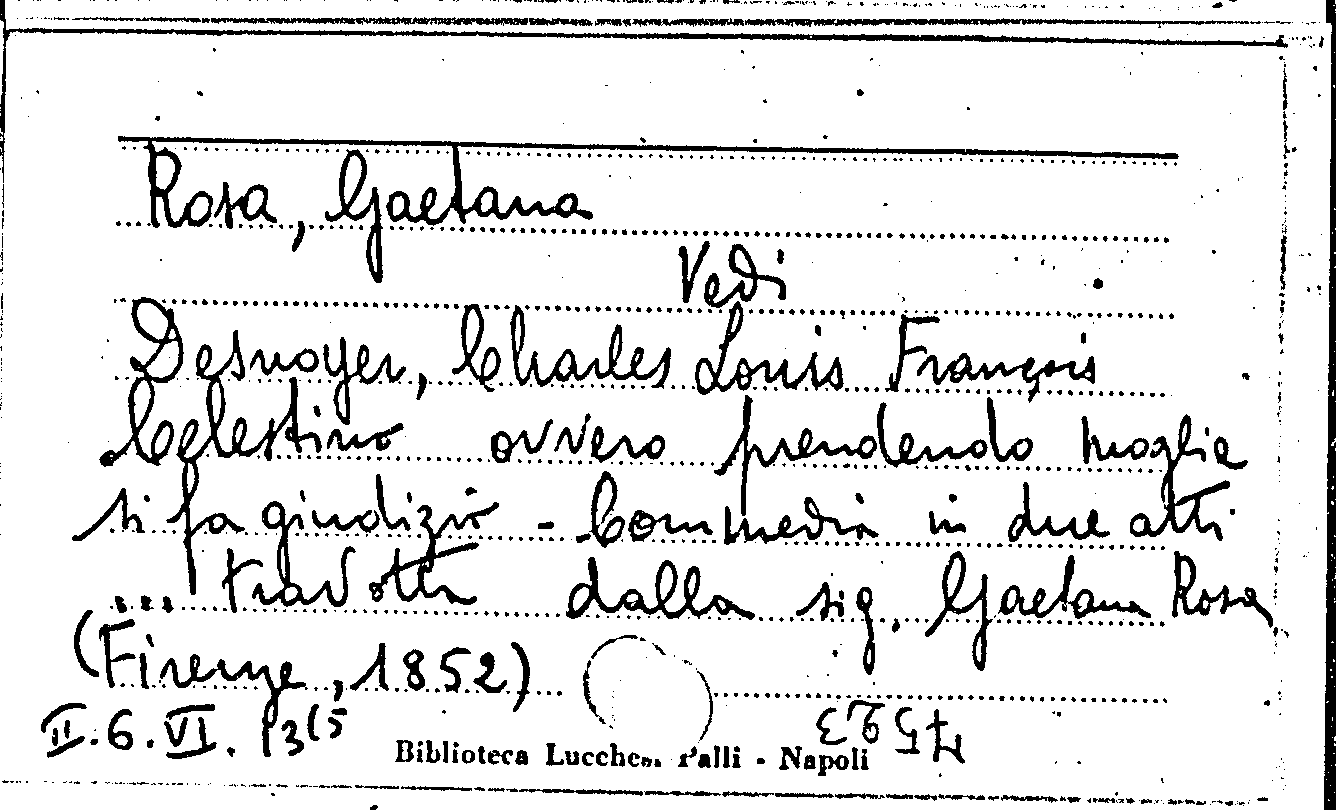 Rosa, Gaetana
Vedi
Desnoyer, Charles Louis François
Celestino ovvero prendendo moglie
si fa giudizio - Commedia in due atti
... tradotta dalla sig. Gaetana Rosa
(Firenze, 1852)
II.6.VI. 13(5
Biblioteca Lucchesi Palli - Napoli